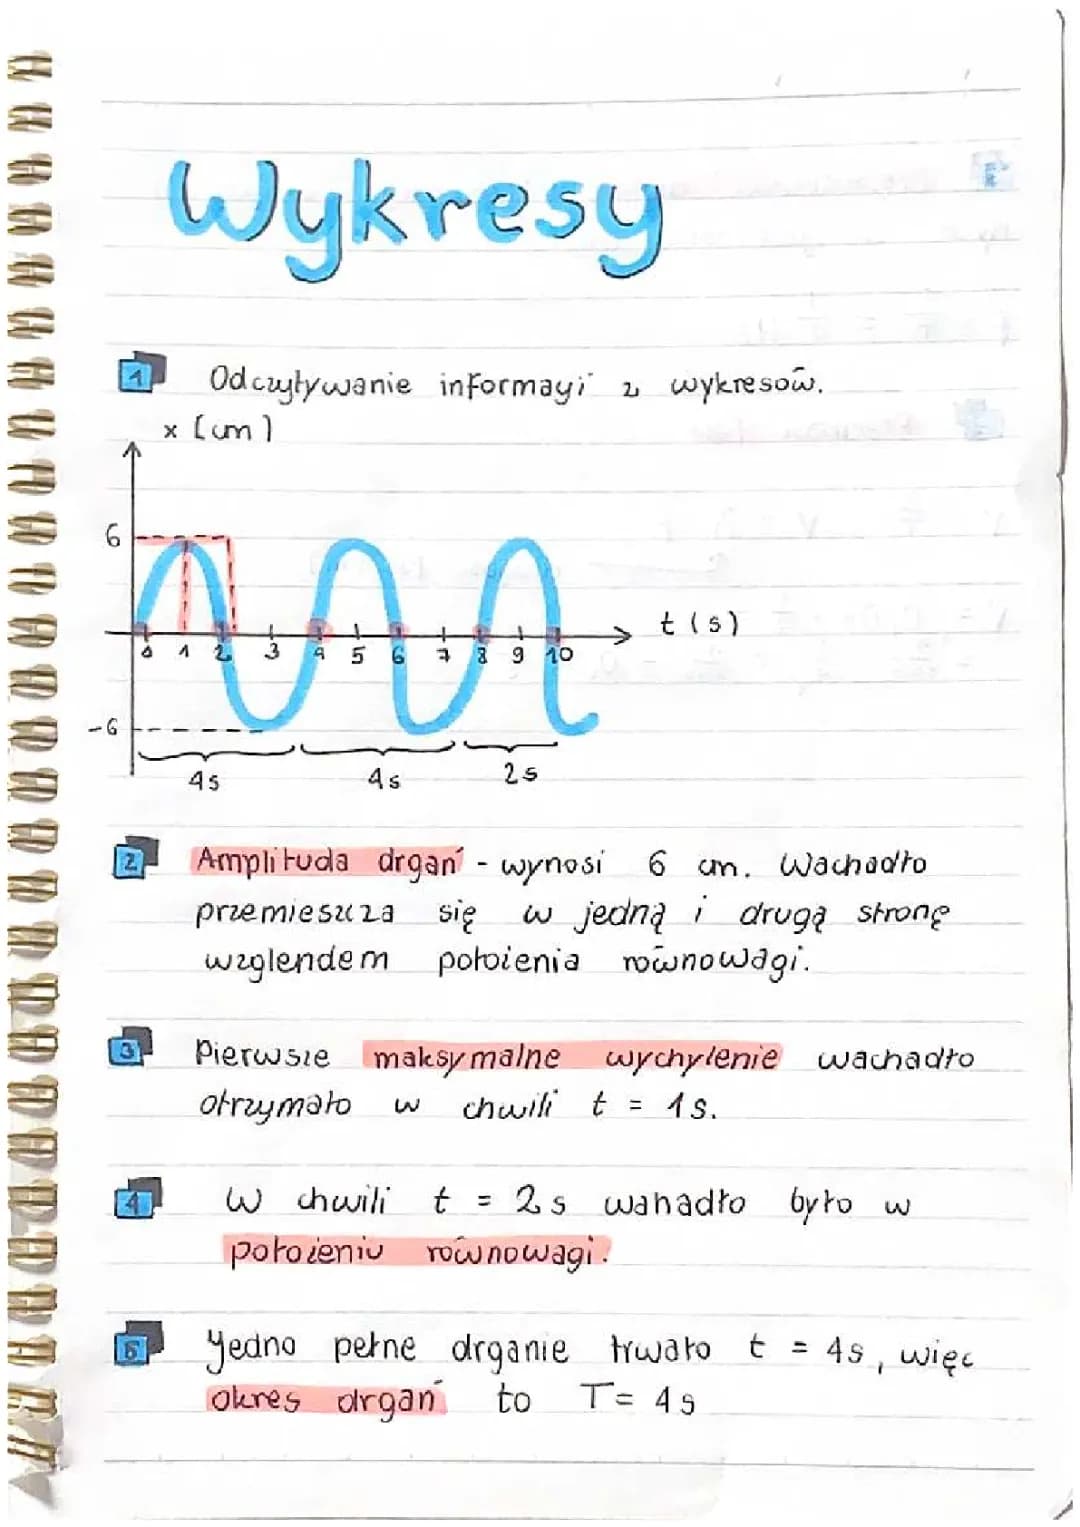 Wykresy
1 Odczytywanie informacji z wykresów.
x [cm]
6
t (s)
0 1 2 3 4 5 6 7 8 9 10
-6
4s 4s 2s
2 Amplituda drgań - wynosi 6 cm. Wachadło
przemieszcza się w jedną i drugą stronę
wzglendem położenia równowagi.
3 Pierwsze maksymalne wychylenie wachadło
otrzymało w chwili t = 1s.
4 W chwili t = 2s wahadło było w
położeniu równowagi.
5 Jedno pełne drganie trwało t = 4s, więc
okres drgań to T= 4s